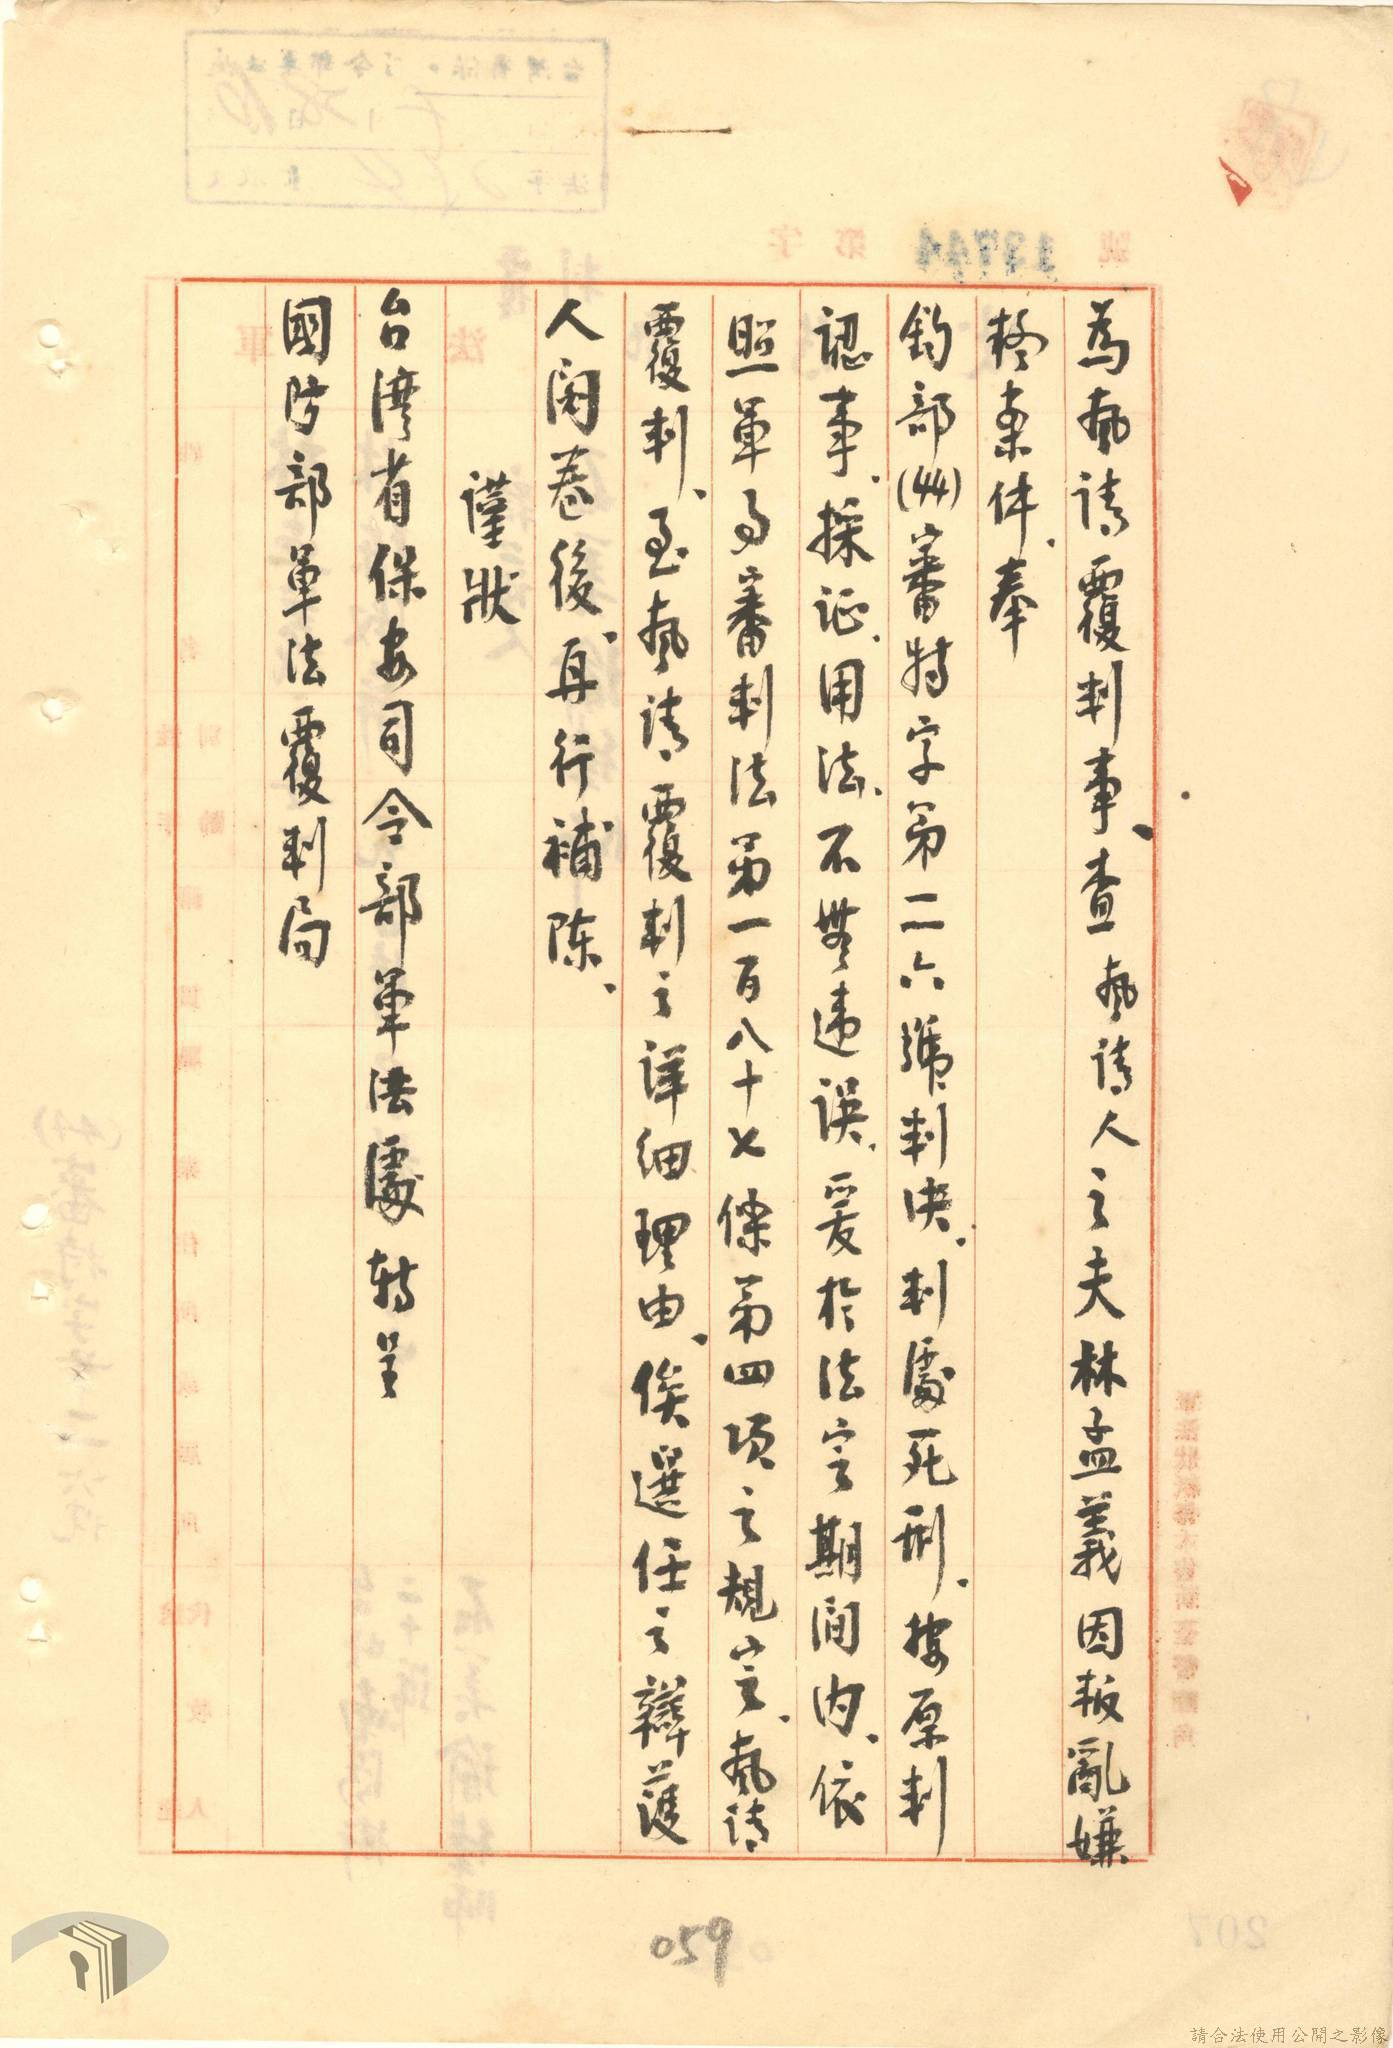 為声請覆判事、查声請人之夫林孟義因叛亂嫌
疑案件、奉
鈞部(44)審特字第二六號判決、判處死刑、按原判
認事、採証、用法、不無違误、爰於法定期间内、依
照軍事審判法第一百八十七條第四項之規定、声請
覆判、至声請覆判之详细理由、俟選任之辯護
人阅卷後、再行補陈、
謹狀
台湾省保安司令部軍法處转呈
國防部軍法覆判局
059
請合法使用公開之影像